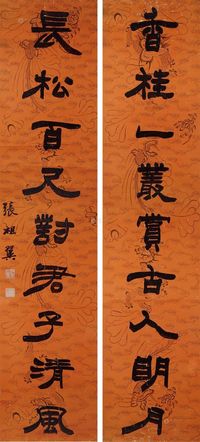 香桂一叢賞古人明月
長松百尺對君子清風
張祖翼